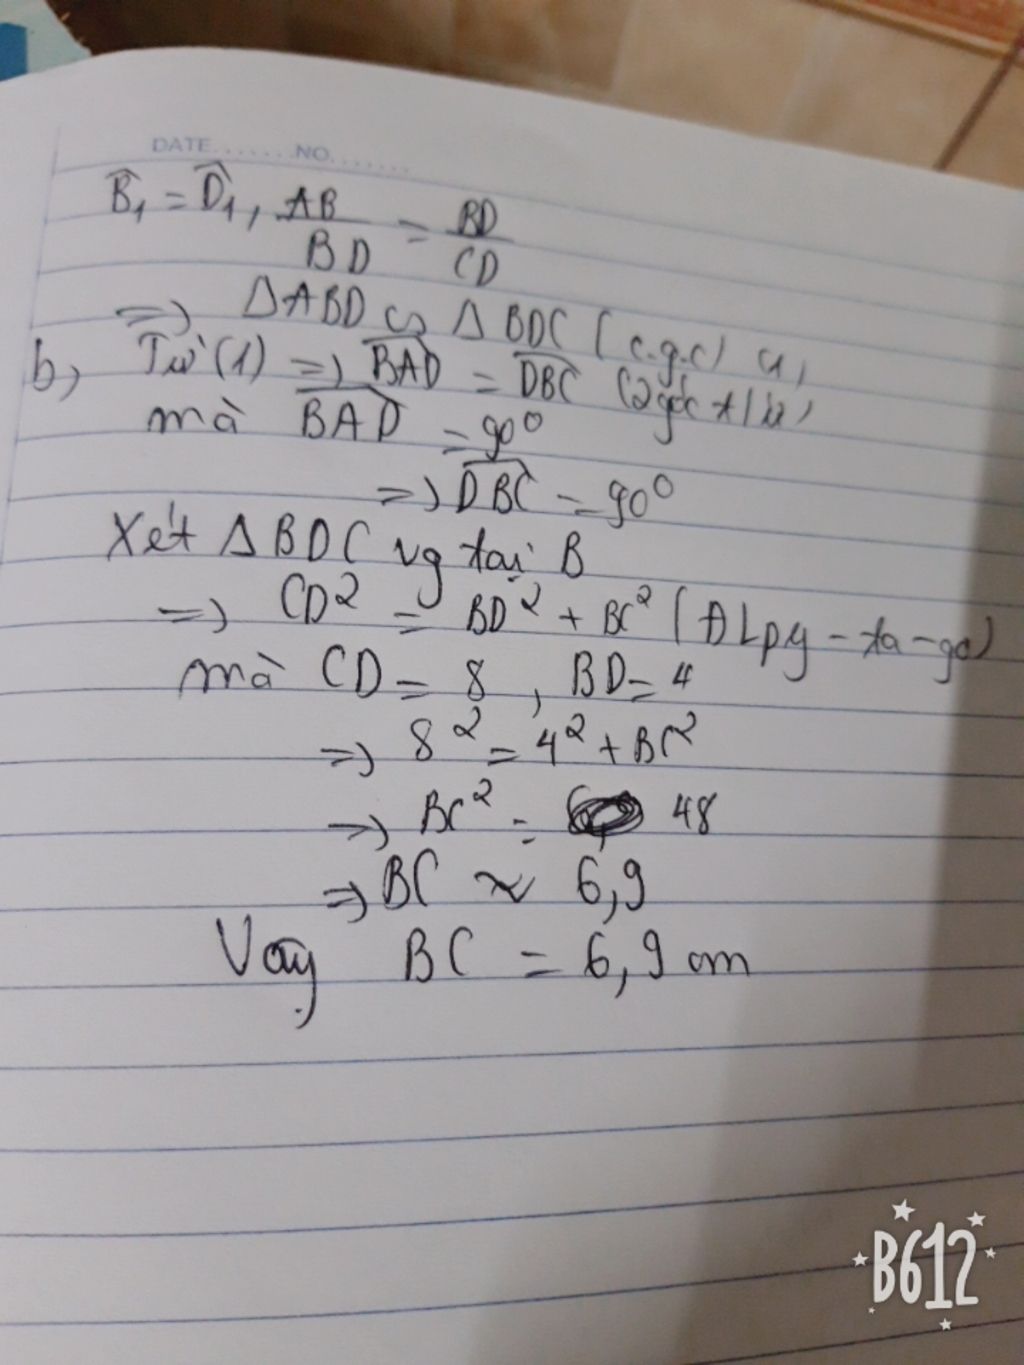 DATE.......NO.......
B̂₁ = D̂₁, AB/BD = BD/CD
=> ΔABD ∽ ΔBDC (c.g.c) (1)
b, Từ (1) => BAD = DBC (2 góc t/ư)
mà BAD = 90°
=> DBC = 90°
Xét ΔBDC vg tại B
=> CD² = BD² + BC² (ĐL py-ta-go)
mà CD = 8, BD = 4
=> 8² = 4² + BC²
=> BC² = 48
=> BC ≈ 6,9
Vậy BC = 6,9 cm
B612